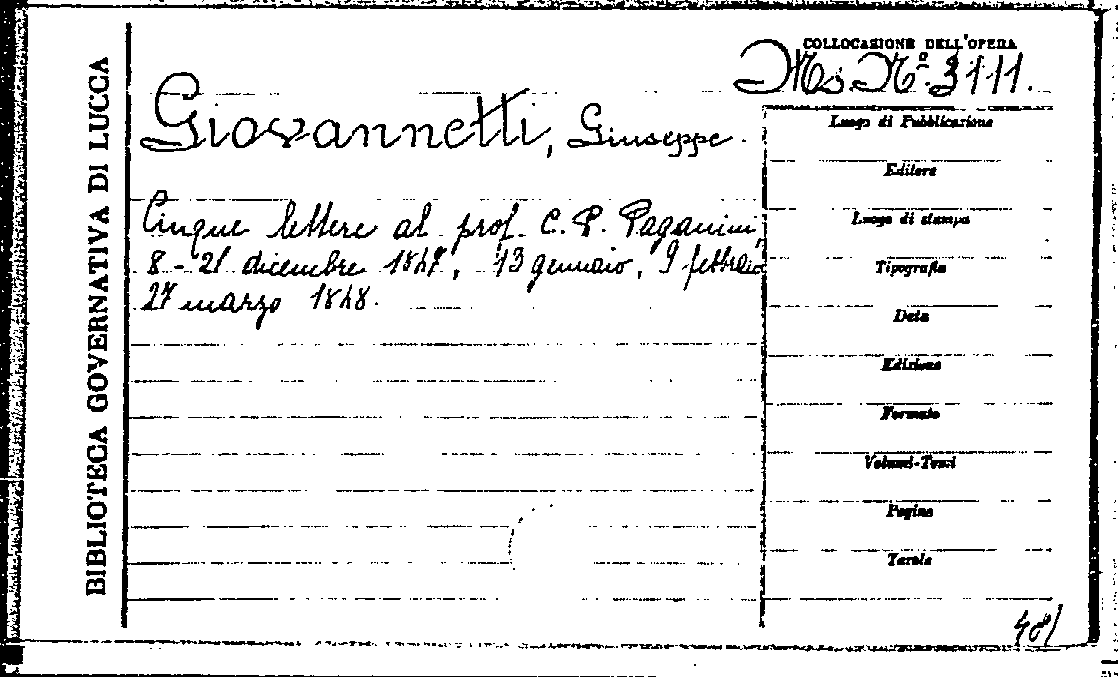 BIBLIOTECA GOVERNATIVA DI LUCCA
COLLOCAZIONE DELL'OPERA
Ms. Nº 3111.
Giovannetti, Giuseppe.
Cinque lettere al prof. C. P. Paganini,
8 - 21 dicembre 1847, 13 gennaio, 9 febbraio
27 marzo 1848.
Luogo di Pubblicazione
Editore
Luogo di stampa
Tipografia
Data
Edizione
Formato
Volumi-Tomi
Pagine
Tavole